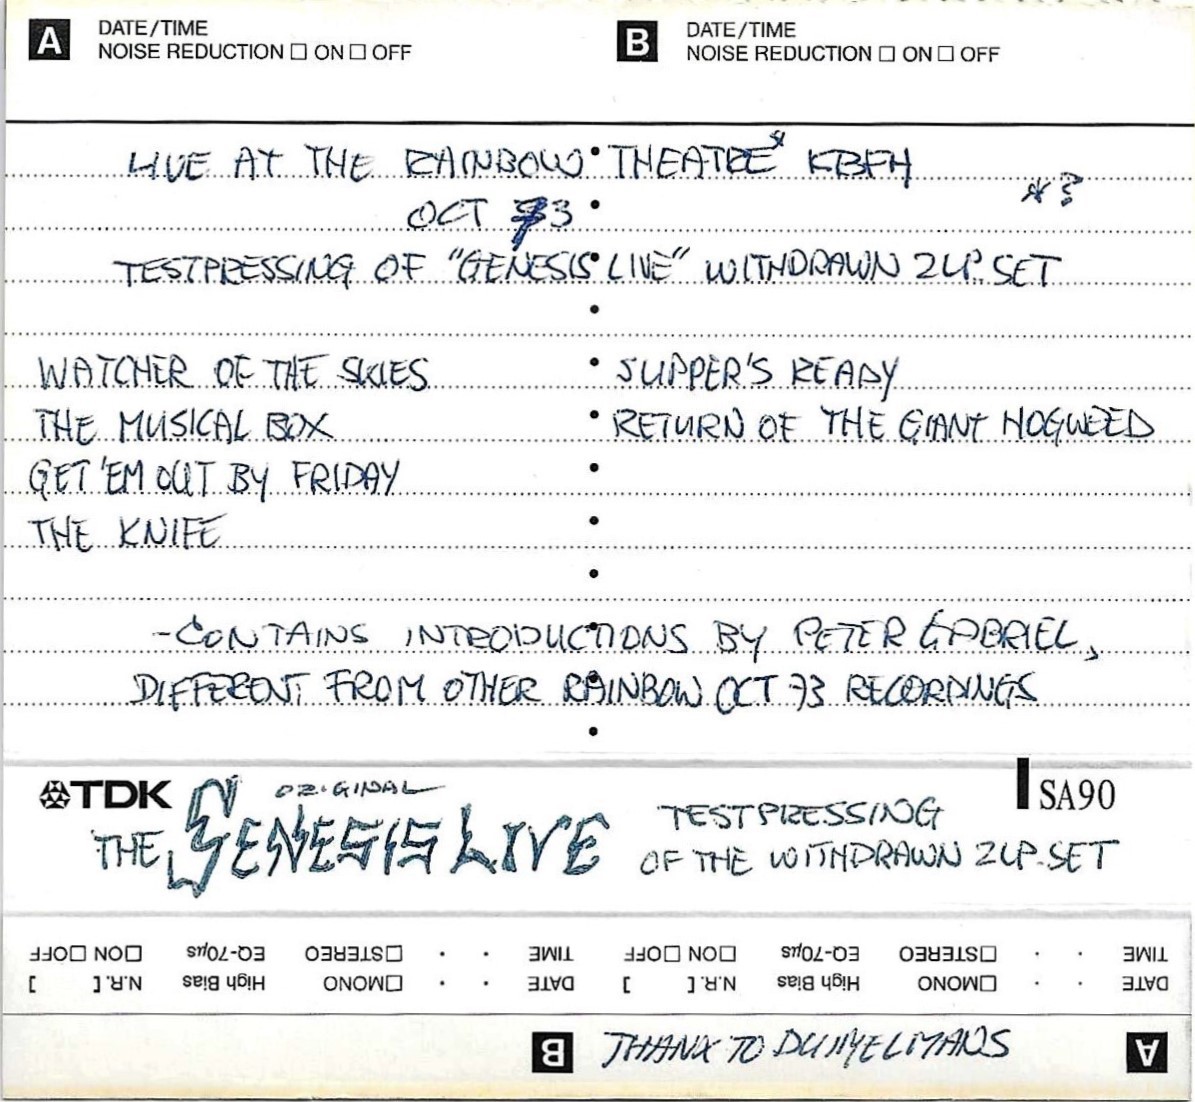 A DATE/TIME
NOISE REDUCTION □ ON □ OFF
B DATE/TIME
NOISE REDUCTION □ ON □ OFF
LIVE AT THE RAINBOW THEATRE* KBFH
*?
OCT 73
TESTPRESSING OF "GENESIS LIVE" WITHDRAWN 2LP. SET
WATCHER OF THE SKIES
THE MUSICAL BOX
GET 'EM OUT BY FRIDAY
THE KNIFE
SUPPER'S READY
RETURN OF THE GIANT HOGWEED
-CONTAINS INTRODUCTIONS BY PETER GABRIEL,
DIFFERENT FROM OTHER RAINBOW OCT 73 RECORDINGS
TDK
SA90
ORIGINAL
THE GENESIS LIVE
TESTPRESSING
OF THE WITHDRAWN 2LP-SET
A
DATE · · □MONO High Bias N.R.[ ]
TIME · · □STEREO EQ-70µs □ON □OFF
B
DATE · · □MONO High Bias N.R.[ ]
TIME · · □STEREO EQ-70µs □ON □OFF
THANX TO